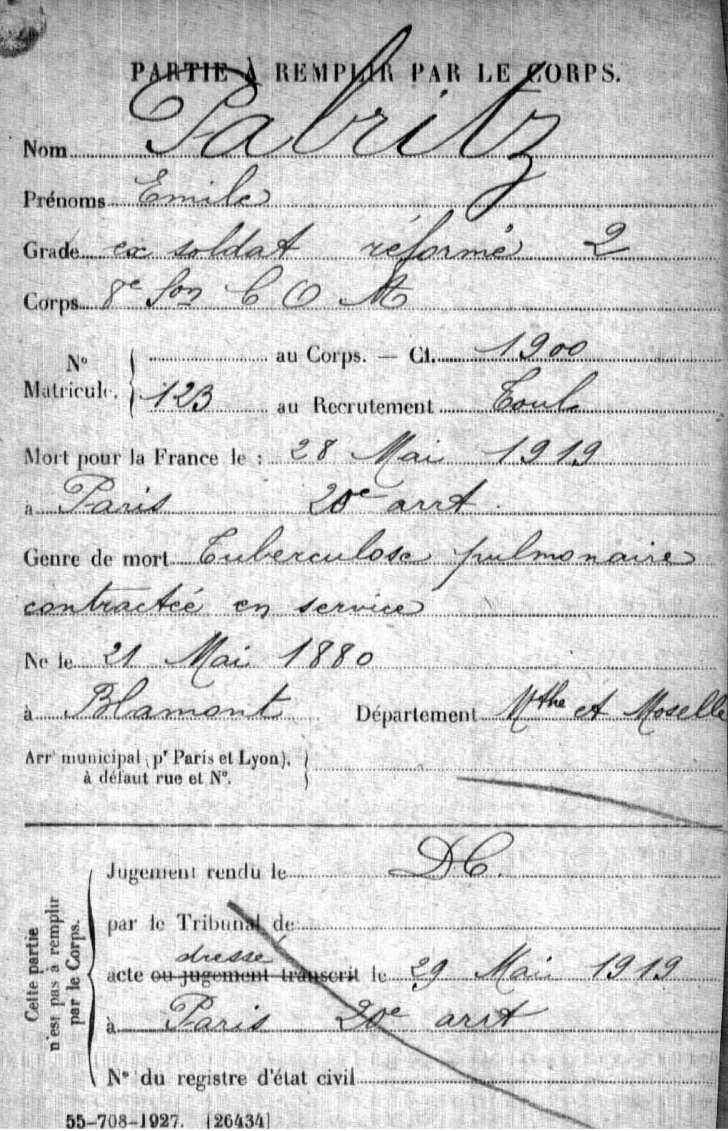 PARTIE À REMPLIR PAR LE CORPS.
Nom Fabritz
Prénoms Emile
Grade ex soldat réformé 2
Corps 8e Son C O A
N° Matricule. au Corps. — Cl. 1900
123 au Recrutement Toul
Mort pour la France le : 28 Mai 1919
à Paris 20e arrt.
Genre de mort Tuberculose pulmonaire
contractée en service
Né le 21 Mai 1880
à Blamont Département Mthe et Moselle
Arrt municipal (pr Paris et Lyon),
à défaut rue et N°.
Cette partie n'est pas à remplir par le Corps.
Jugement rendu le DC.
par le Tribunal de
dressé
acte ou jugement transcrit le 29 Mai 1919
à Paris 20e arrt
N° du registre d'état civil
55-708-1927. [26434]